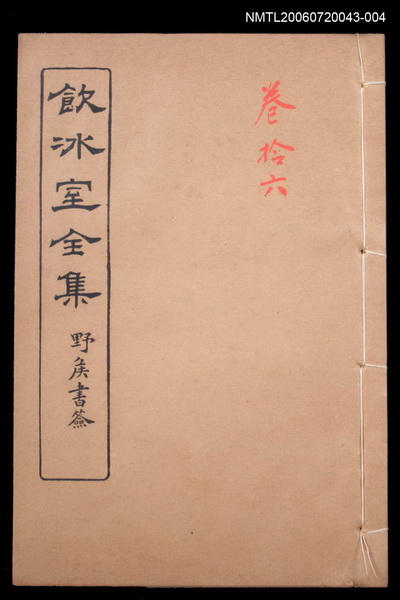 NMTL20060720043-004
卷拾六
飲冰室全集
野矦書簽